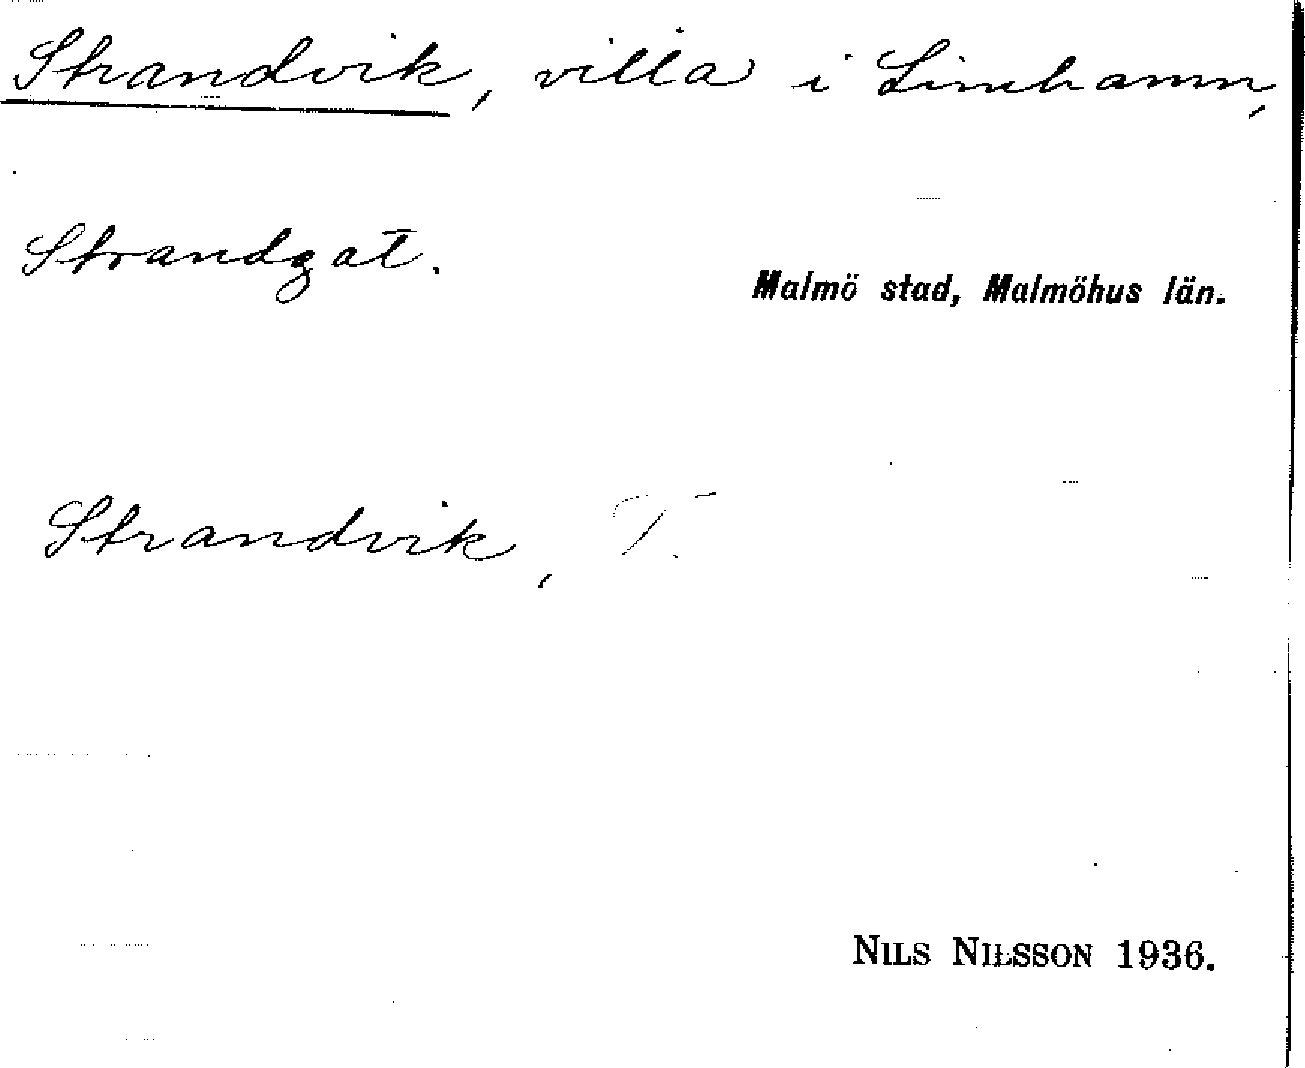 Strandvik, villa i Limhamn,
Strandgat.
Malmö stad, Malmöhus län.
Strandvik,
NILS NILSSON 1936.